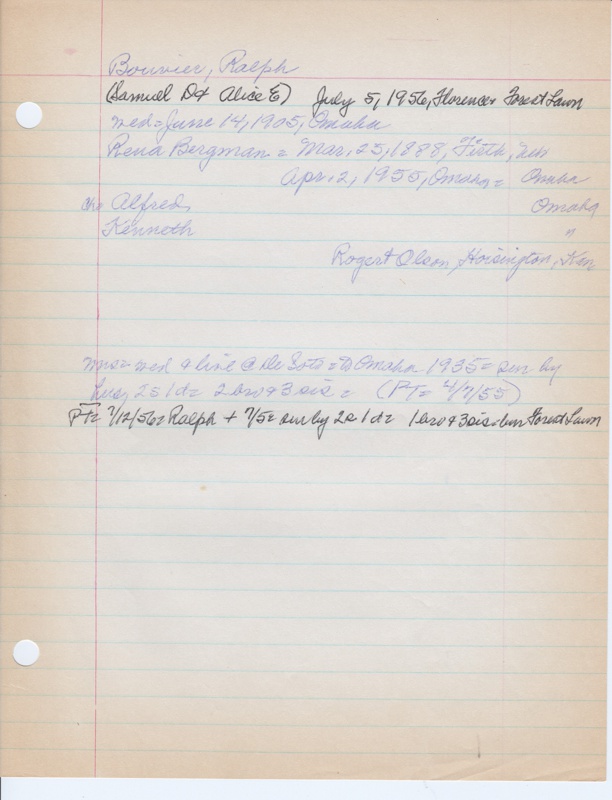 Bouvier, Ralph
(Samuel D+ Alice E) July 5, 1956, Florence + Forest Lawn
med = June 14, 1905, Omaha
Rena Bergman = Mar. 25, 1888, Firth, Neb
Apr. 2, 1955, Omaha = Omaha
ch = Alfred, Omaha
Kenneth "
Rogert Olson, Hoisington, Kan
med & live @ De Soto = to Omaha 1935 = sur by
hus, 2s 1d = 2 bro & 3 sis = (PT = 4/7/55)
PT = 7/12/56 = Ralph + 7/5 = sur by 2s 1d = 1 bro & 3 sis = bur Forest Lawn